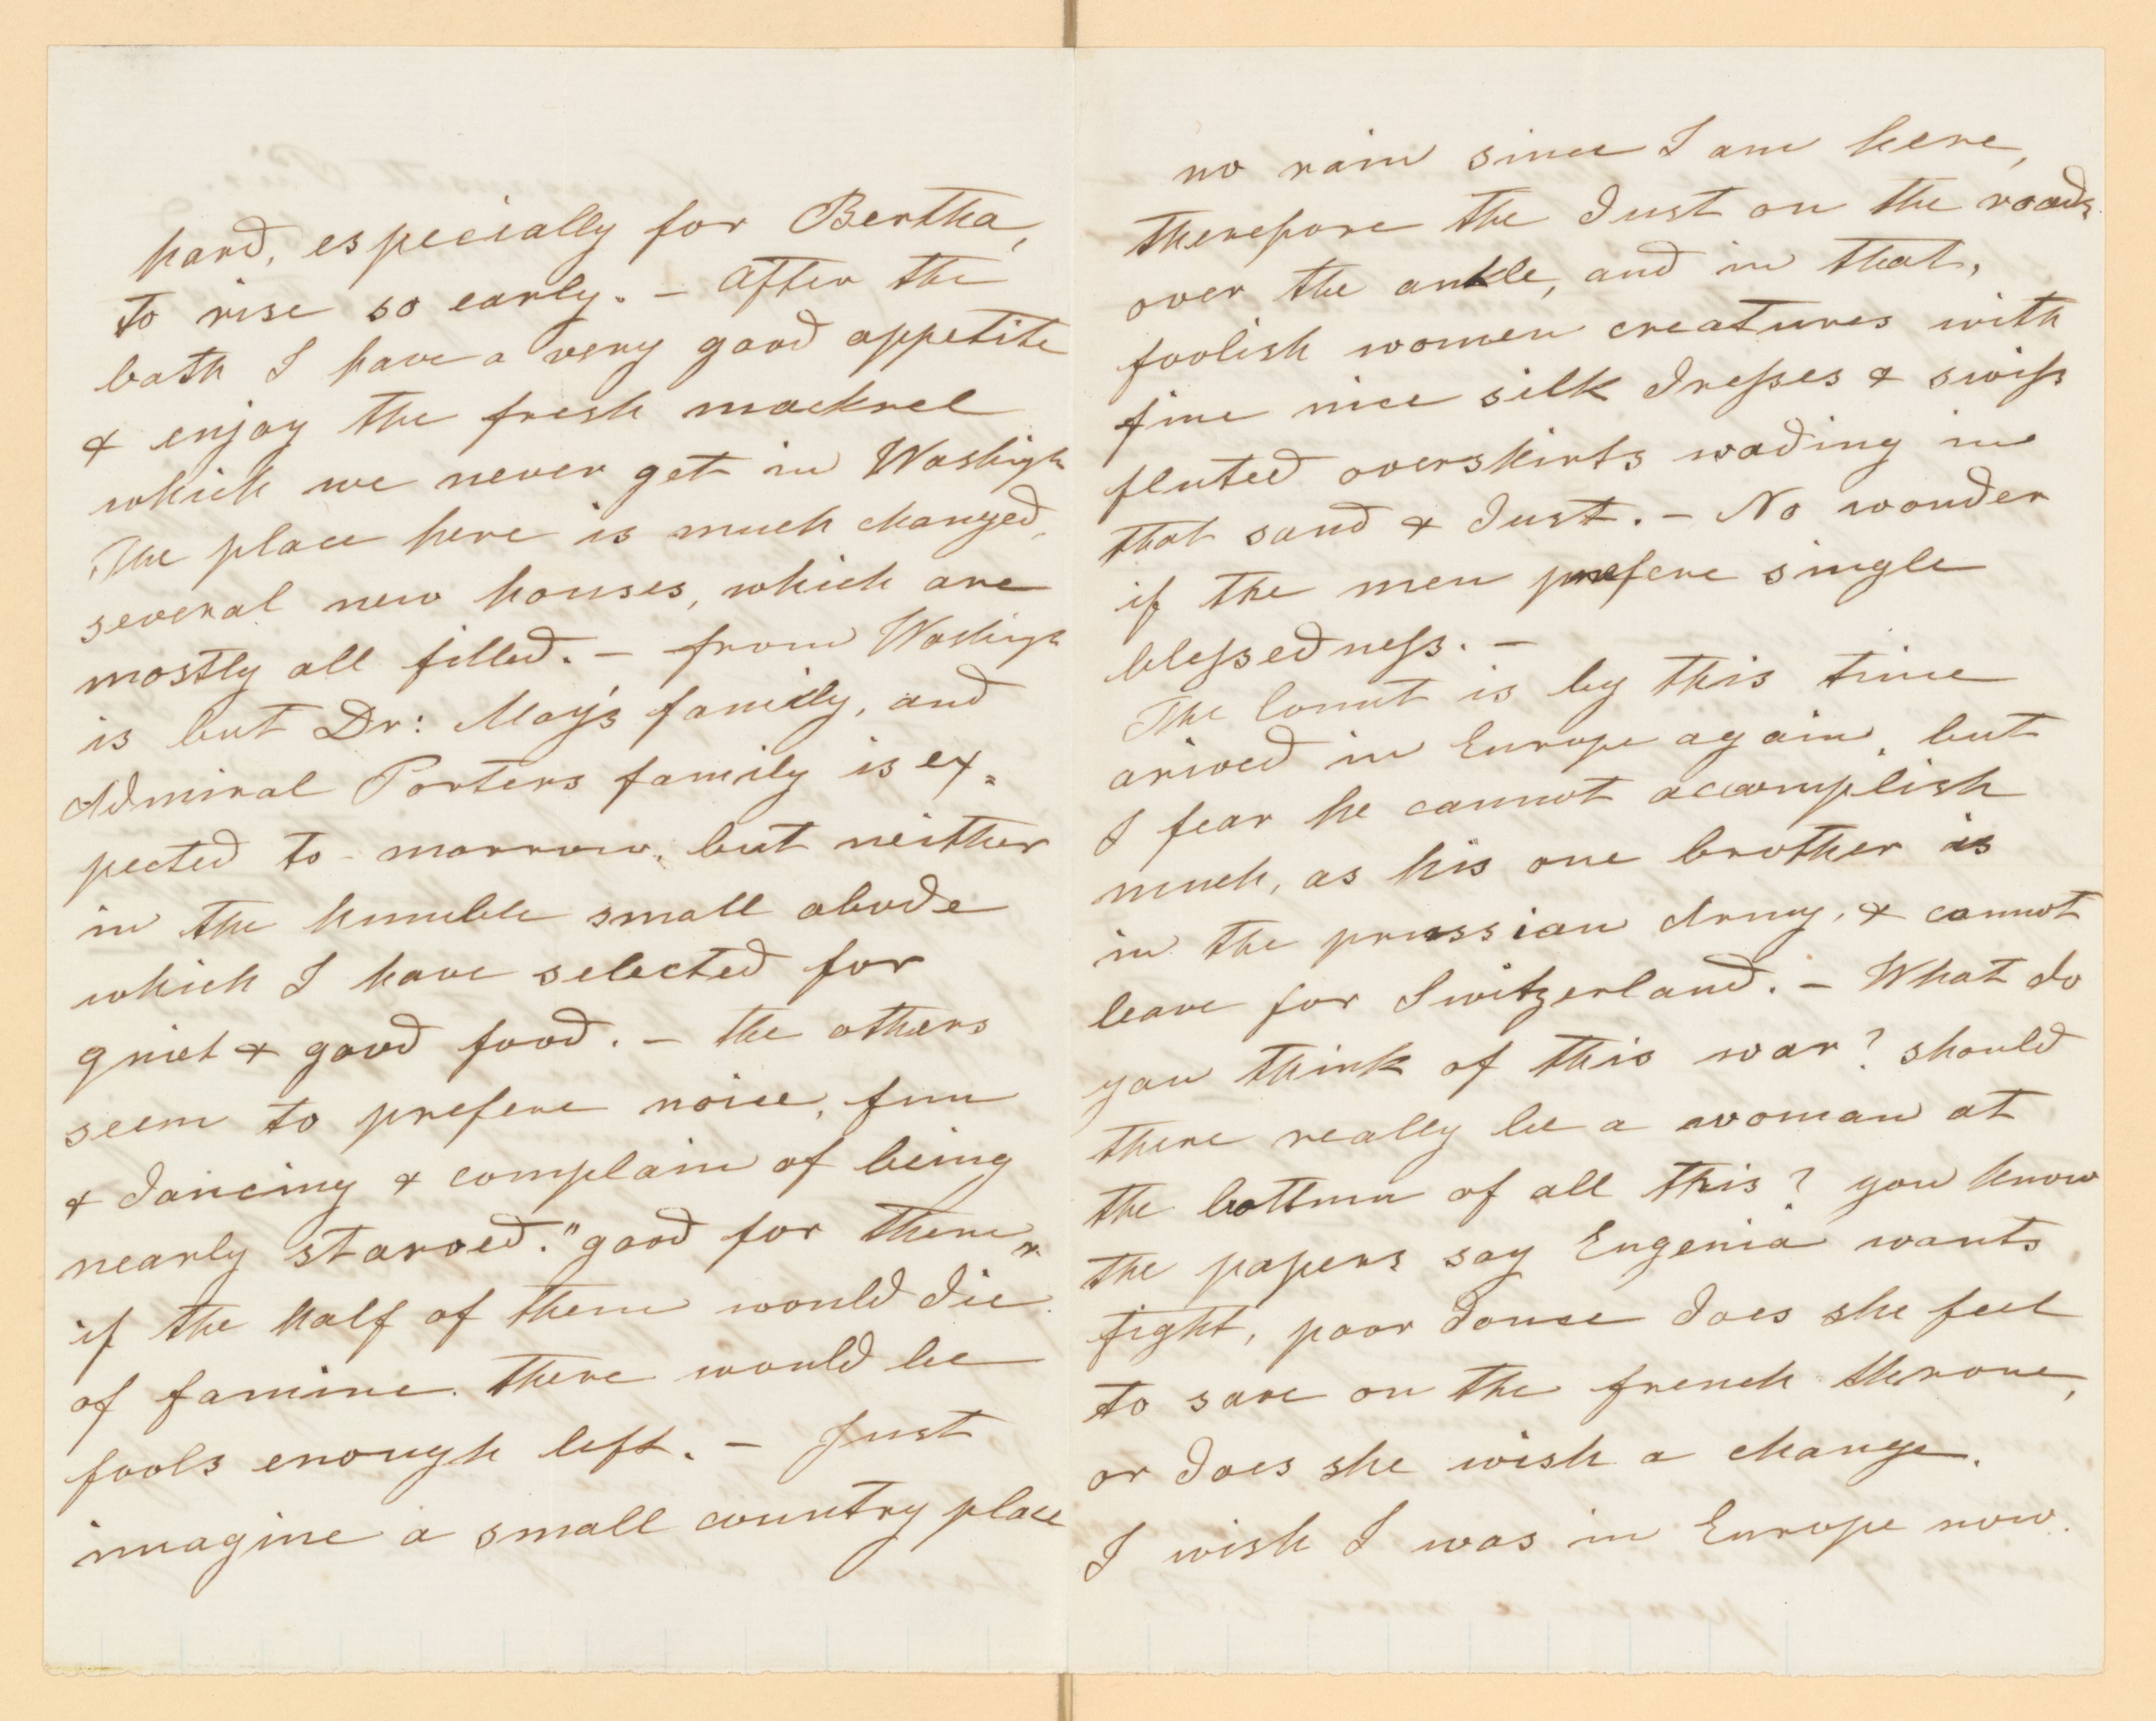 hard, especially for Bertha,
to rise so early. - After the
bath I have a very good appetite
& enjoy the fresh mackrel
which we never get in Washigt
The place here is much changed,
several new houses, which are
mostly all filled. - from Washigt
is but Dr: May's family, and
Admiral Porters family is ex=
pected to-morrow, but neither
in the humble small abode
which I have selected for
quiet & good food. - the others
seem to prefere noise, fun
& dancing & complain of being
nearly starved. "good for them"
if the half of them would die
of famine. there would be
fools enough left. - Just
imagine a small country place
no rain since I am here,
therefore the dust on the roads
over the ankle, and in that,
foolish women creatures with
fine nice silk dresses & swiss
fluted overskirts wading in
that sand & dust. - No wonder
if the men prefere single
blessedness. -
The Count is by this time
arived in Europe again, but
I fear he cannot accomplish
much, as his one brother is
in the prussian Army, & cannot
leave for Switzerland. - What do
you think of this war? should
there really be a woman at
the bottum of all this? you know
the papers say Eugenia wants
fight, poor donce does she feel
to save on the french throne,
or does she wish a change.
I wish I was in Europe now.